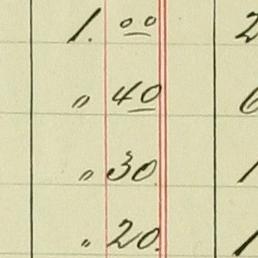 1. 00 2
" 40 6
" 30. 1
" 20. 1